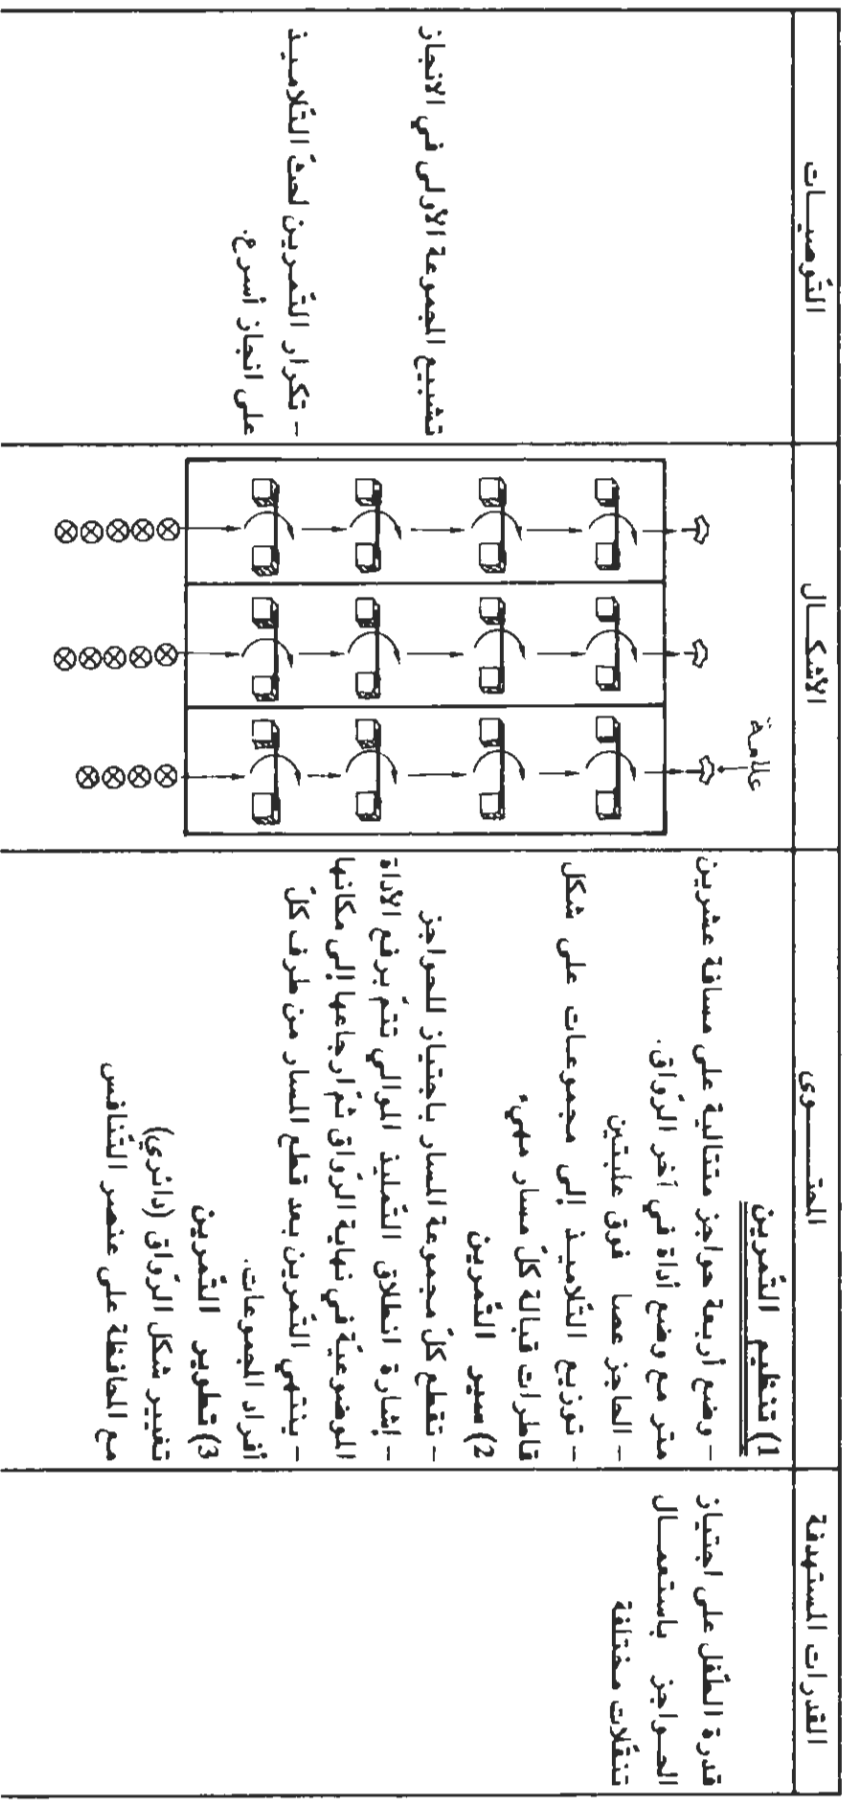 القدرات المستهدفة
المحتـــــوى
الأشكـــال
التّوصيـــات
قدرة الطّفل على اجتياز
الحـواجز باستعمـال
تنقّلات مختلفة
1) تنظيم التّمرين
– وضع أربعة حواجز متتالية على مسافة عشرين
متر مع وضع أداة في آخر الرّواق.
– الحاجز عصا فوق علبتين
– توزيع التّلاميـذ إلى مجموعـات على شكل
قاطرات قبالة كلّ مسار مهيء
2) سير التّمرين
– تقطع كلّ مجموعة المسار باجتياز للحواجز
– إشارة انطلاق التّمليذ الموالي تتمّ برفع الأداة
الموضوعيّة في نهاية الرّواق ثمّ ارجاعها إلى مكانها
– ينتهي التّمرين بعد قطع المسار من طرف كلّ
أفراد المجموعات.
3) تطوير التّمرين
تغيير شكل الرّواق (دائري)
مع المحافظة على عنصر التّنافس
علامة
تشبيع المجموعة الأولى في الانجاز
– تكرار التّمرين لحثّ التّلاميـذ
على انجاز أسرع.